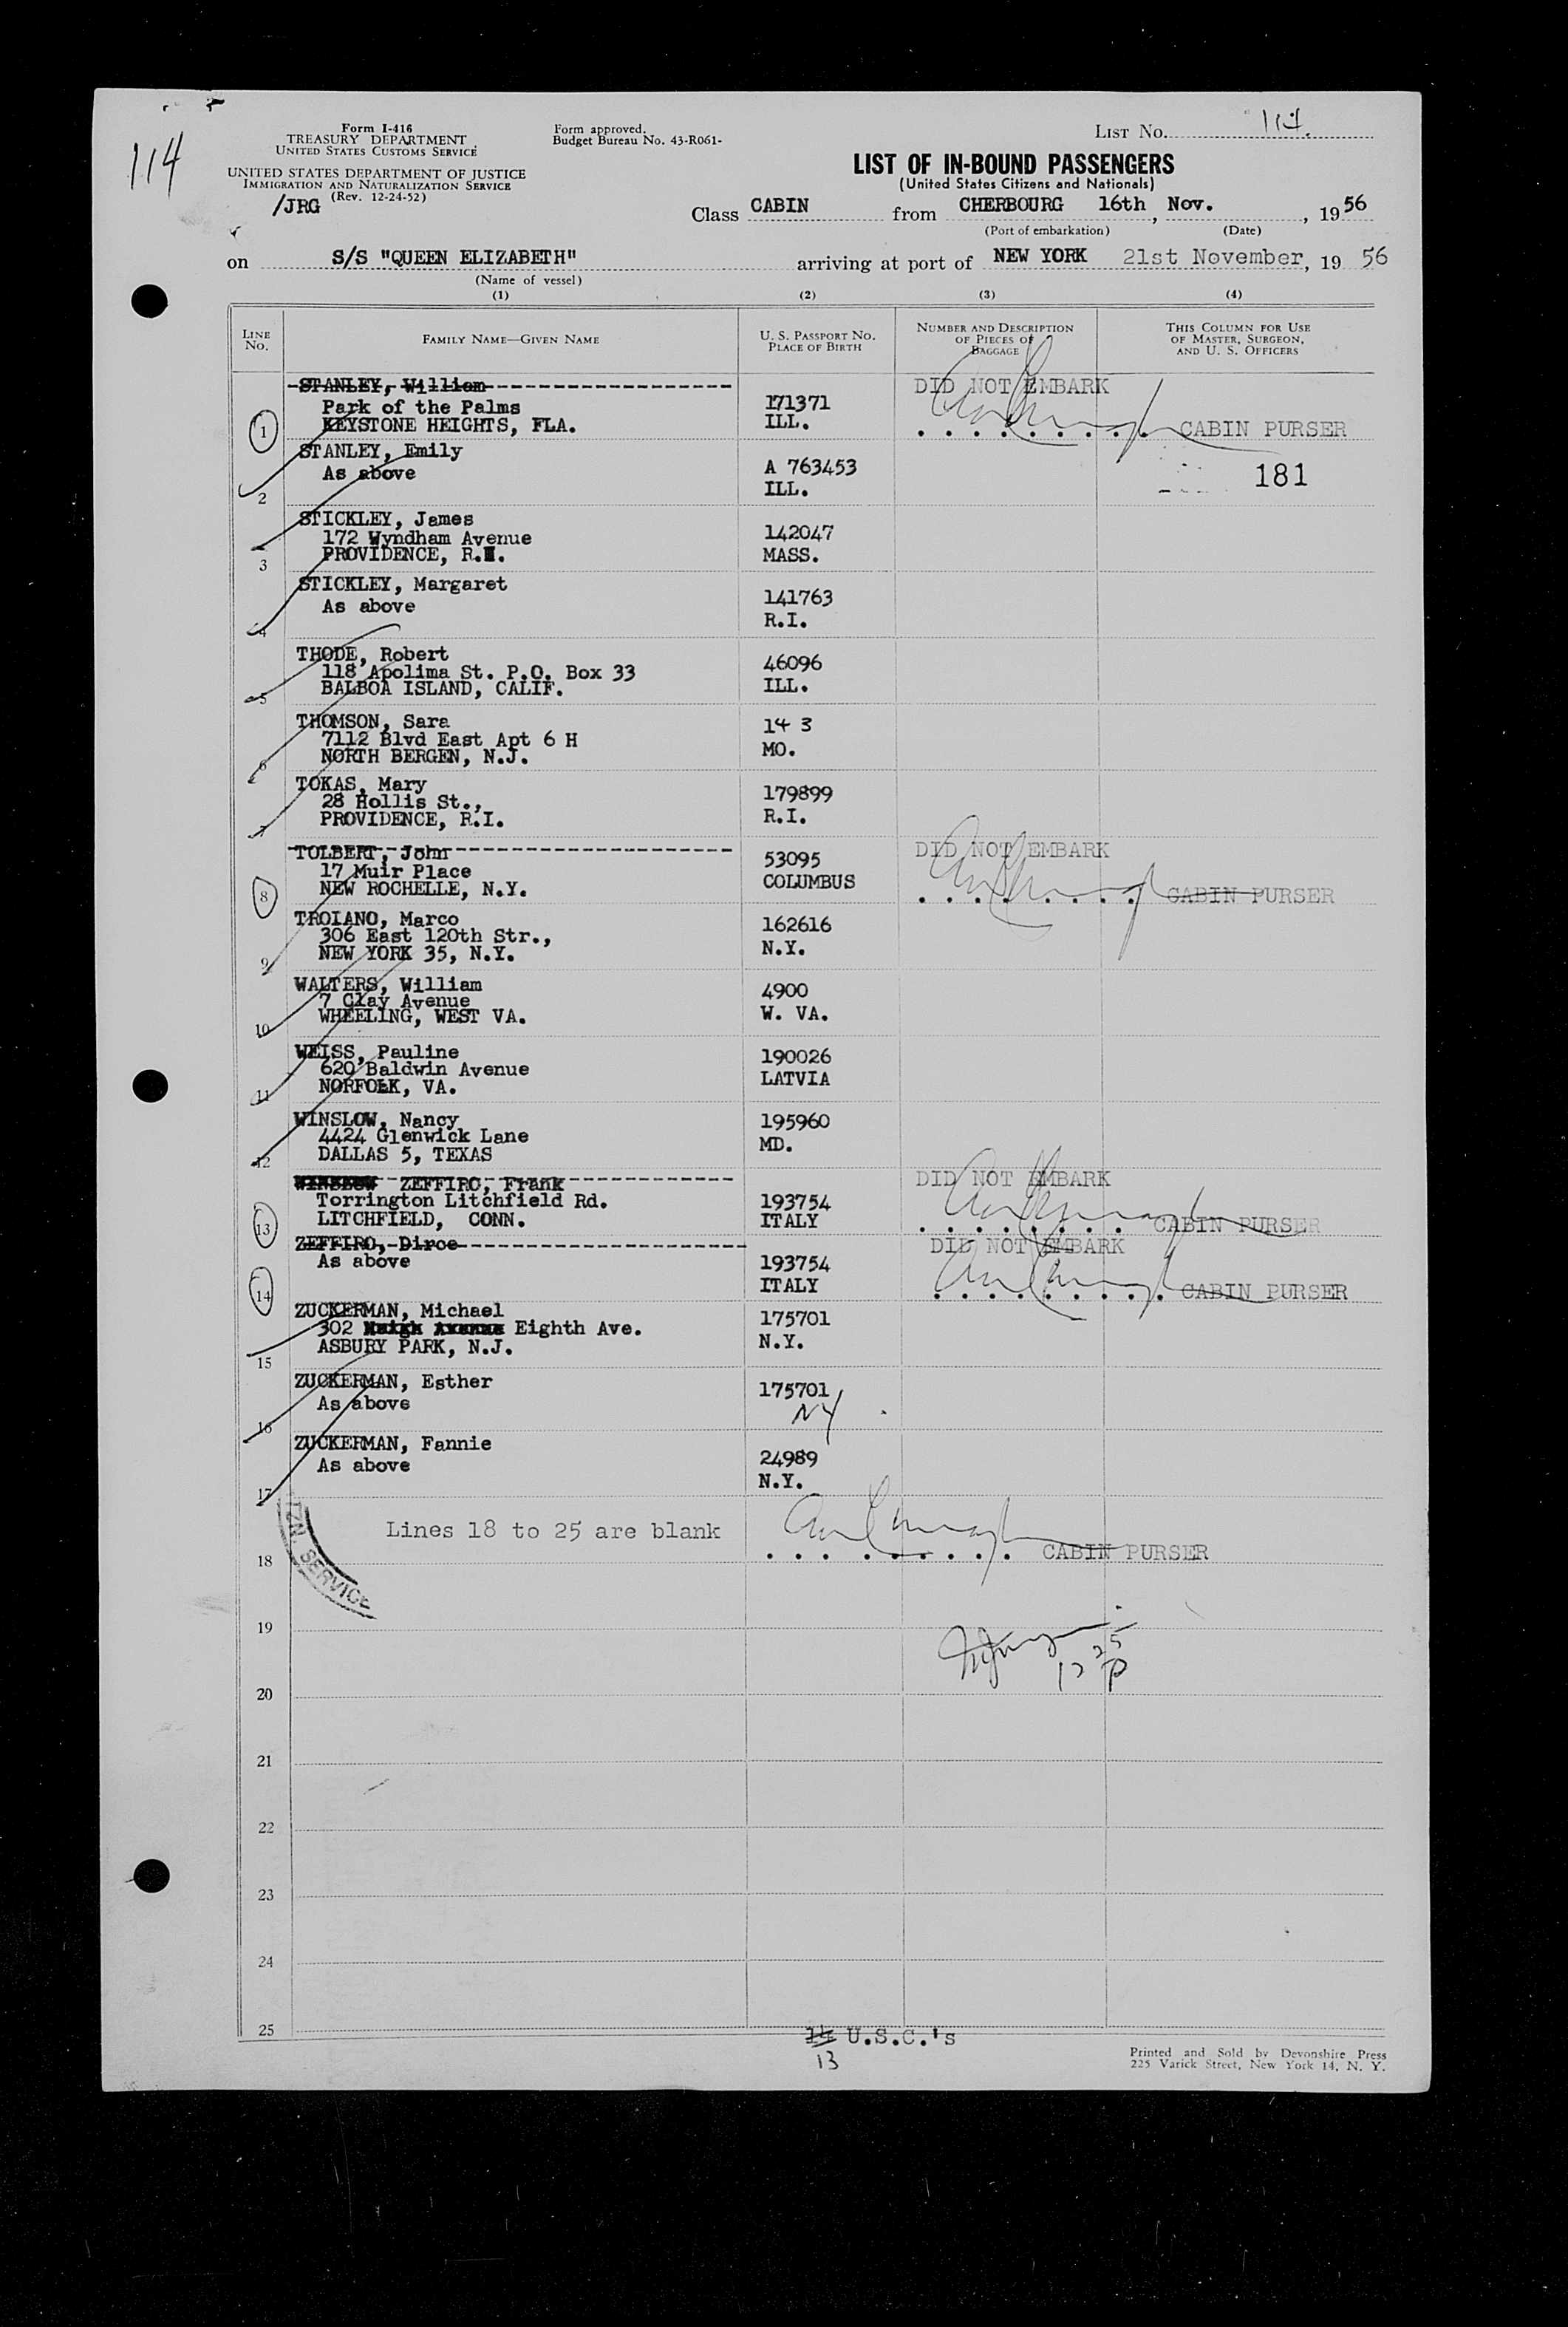 114
Form I-416
TREASURY DEPARTMENT
UNITED STATES CUSTOMS SERVICE
UNITED STATES DEPARTMENT OF JUSTICE
IMMIGRATION AND NATURALIZATION SERVICE
(Rev. 12-24-52)
/JRG
Form approved.
Budget Bureau No. 43-R061-
LIST NO. 114.
LIST OF IN-BOUND PASSENGERS
(United States Citizens and Nationals)
Class CABIN from CHERBOURG 16th, Nov. , 1956
(Port of embarkation) (Date)
on S/S "QUEEN ELIZABETH" arriving at port of NEW YORK 21st November, 19 56
(Name of vessel)
(1) (2) (3) (4)
LINE NO.
FAMILY NAME—GIVEN NAME
U. S. PASSPORT NO.
PLACE OF BIRTH
NUMBER AND DESCRIPTION
OF PIECES OF
BAGGAGE
THIS COLUMN FOR USE
OF MASTER, SURGEON,
AND U. S. OFFICERS
STANLEY, William DID NOT EMBARK
Park of the Palms 171371
1 KEYSTONE HEIGHTS, FLA. ILL. CABIN PURSER
STANLEY, Emily
As above A 763453 181
2 ILL.
STICKLEY, James
172 Wyndham Avenue 142047
3 PROVIDENCE, R.I. MASS.
STICKLEY, Margaret
As above 141763
4 R.I.
THODE, Robert
118 Apolima St. P.O. Box 33 46096
5 BALBOA ISLAND, CALIF. ILL.
THOMSON, Sara
7112 Blvd East Apt 6 H 14 3
6 NORTH BERGEN, N.J. MO.
TOKAS, Mary
28 Hollis St., 179899
7 PROVIDENCE, R.I. R.I.
TOLBERT, John DID NOT EMBARK
17 Muir Place 53095
8 NEW ROCHELLE, N.Y. COLUMBUS CABIN PURSER
TROIANO, Marco
306 East 120th Str., 162616
9 NEW YORK 35, N.Y. N.Y.
WALTERS, William
7 Clay Avenue 4900
10 WHEELING, WEST VA. W. VA.
WEISS, Pauline
620 Baldwin Avenue 190026
11 NORFOLK, VA. LATVIA
WINSLOW, Nancy
4424 Glenwick Lane 195960
12 DALLAS 5, TEXAS MD.
ZEFFIRO, Frank DID NOT EMBARK
Torrington Litchfield Rd. 193754
13 LITCHFIELD, CONN. ITALY CABIN PURSER
ZEFFIRO, Dirce DID NOT EMBARK
As above 193754
14 ITALY CABIN PURSER
ZUCKERMAN, Michael
302 Eighth Ave. 175701
15 ASBURY PARK, N.J. N.Y.
ZUCKERMAN, Esther
As above 175701
16 NY
ZUCKERMAN, Fannie
As above 24989
17 N.Y.
Lines 18 to 25 are blank
18 CABIN PURSER
TZN. SERVICE
19
20
21
22
23
24
25
14 U.S.C.'s
13
Printed and Sold by Devonshire Press
225 Varick Street, New York 14, N. Y.